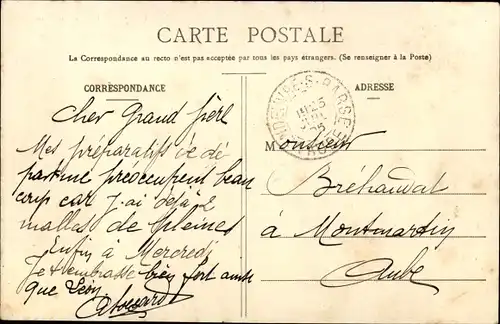 CARTE POSTALE
La Correspondance au recto n'est pas acceptée par tous les pays étrangers. (Se renseigner à la Poste)
CORRESPONDANCE
Cher Grand frère
Mes préparatifs de dé
part me préoccupent beau
coup car j'ai déjà 2
malles de pleines
Enfin à Mercredi
Je t'embrasse bien fort ainsi
que Léon
ADRESSE
Monsieur
Bréhaudat
à Montmartin
Aube